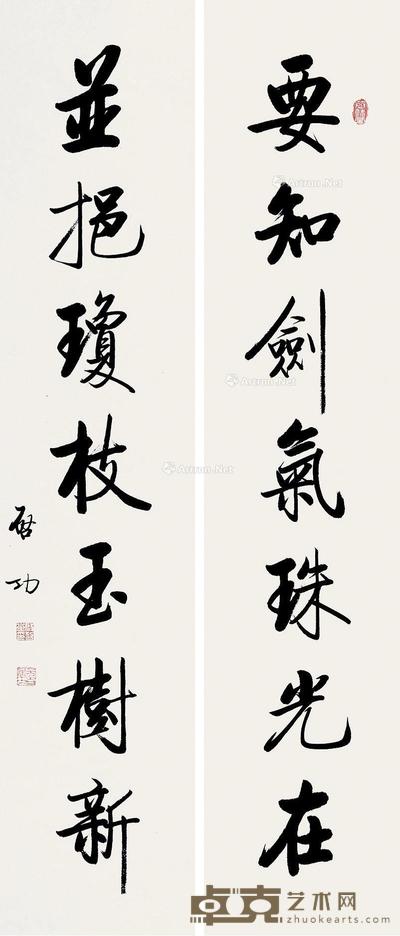 要知劍氣珠光在
並挹瓊枝玉樹新
启功
Artron.Net
Artron.Net
Artron.Net
Artron.Net
卓克艺术网
zhuokearts.com